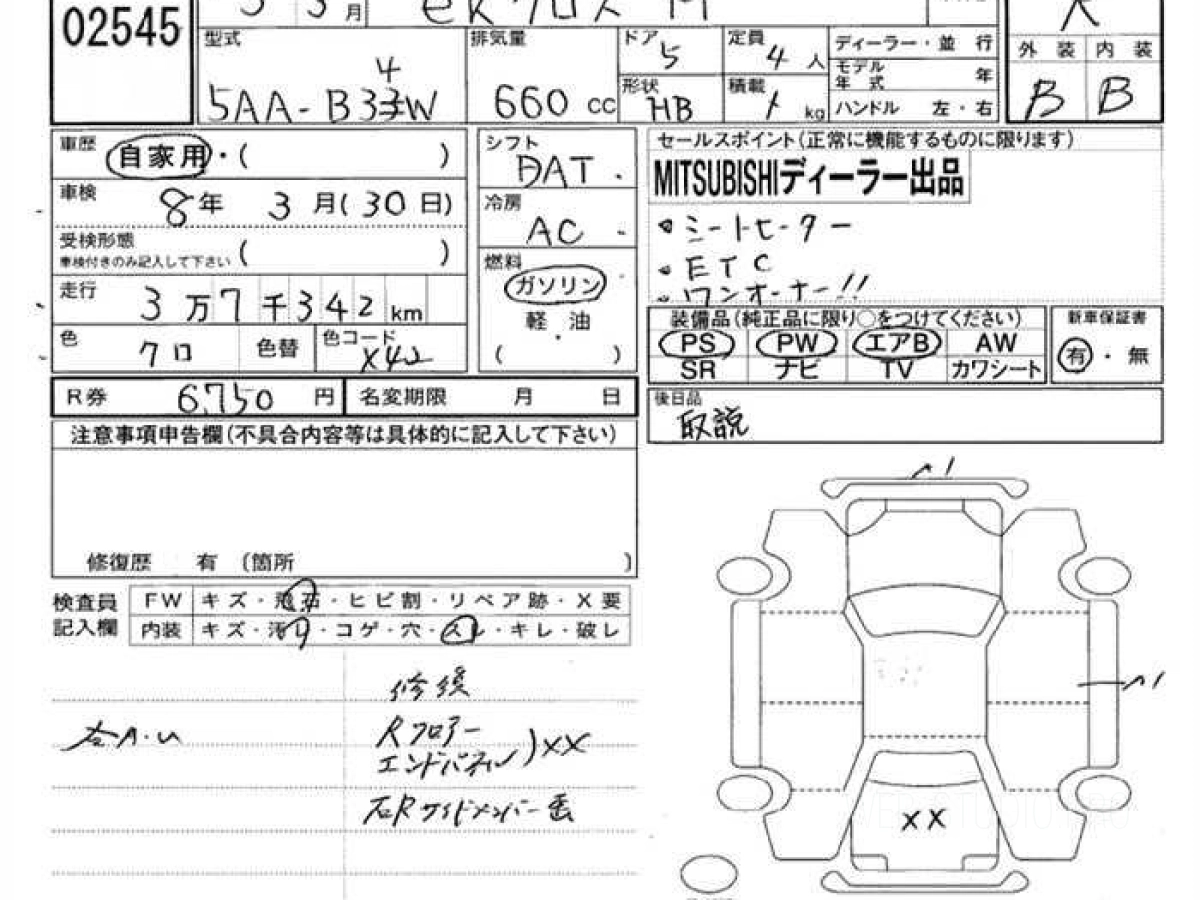 02545
3 3月
eKクロス M
R
型式
5AA-B34W
排気量
660 CC
ドア
5
定員
4 人
形状
HB
積載
kg
ディーラー・並 行
モデル年式 年
ハンドル 左・右
外 装 内 装
B B
車歴
自家用・( )
車検
8年 3月(30日)
受検形態 ( )
車検付きのみ記入して下さい
走行
3万7千342km
色
クロ
色替
色コード
X42
シフト
DAT
冷房
AC
燃料
ガソリン
・
軽 油
( )
セールスポイント(正常に機能するものに限ります)
MITSUBISHIディーラー出品
・シートヒーター
・ETC
・ワンオーナー!!
装備品(純正品に限り○をつけてください)
PS PW エアB AW
SR ナビ TV カワシート
新車保証書
有・無
R券
6,750 円
名変期限 月 日
後日品
取説
注意事項申告欄(不具合内容等は具体的に記入して下さい)
修復歴 有 〔箇所 〕
検査員記入欄
FW キズ・飛石・ヒビ割・リペア跡・X要
内装 キズ・汚レ・コゲ・穴・スレ・キレ・破レ
修復
Rフロアー
エンドパネル )XX
右Rサイドメンバー
XX